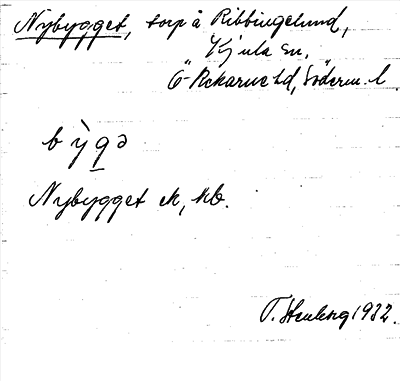 Nybygget, torp å Ribbingelund,
Kjula sn,
Ö Rekarne hd, Söderm. l.
by̆gə
Nybygget ek, kb.
T. Stenberg 1932.